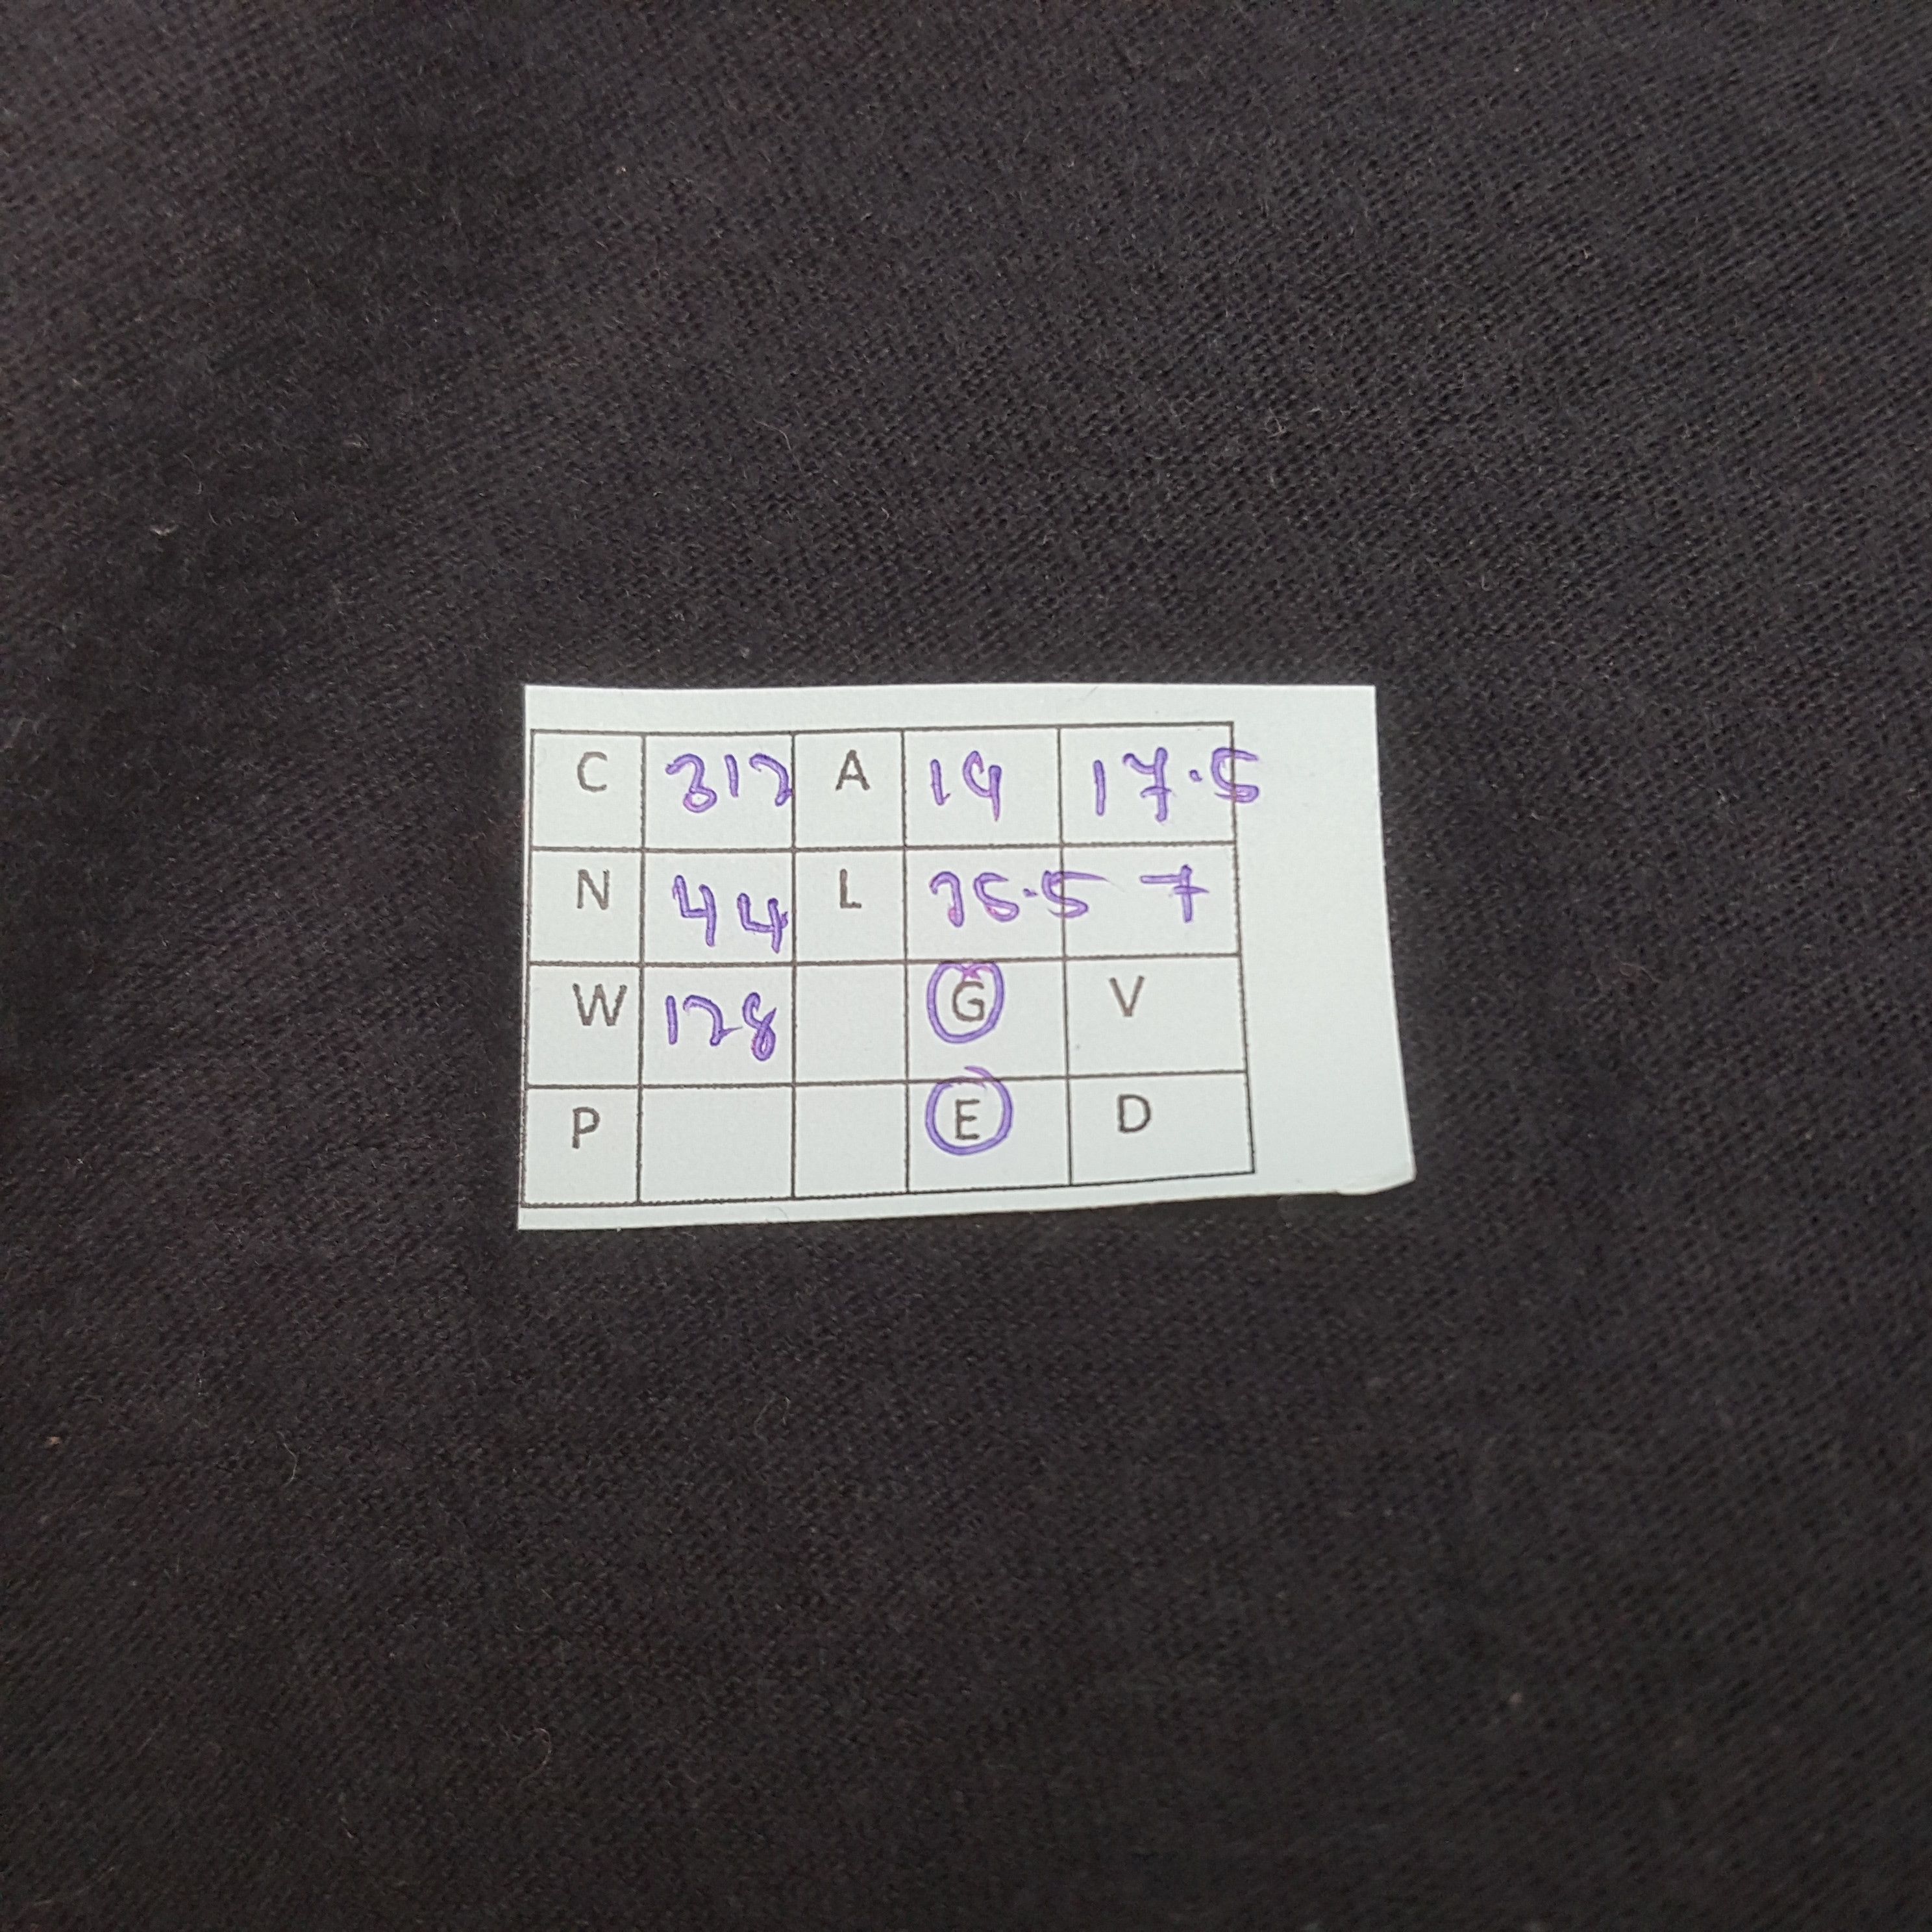 C 312 A 19 17.5
N 44 L 25.5 7
W 128 G V
P E D